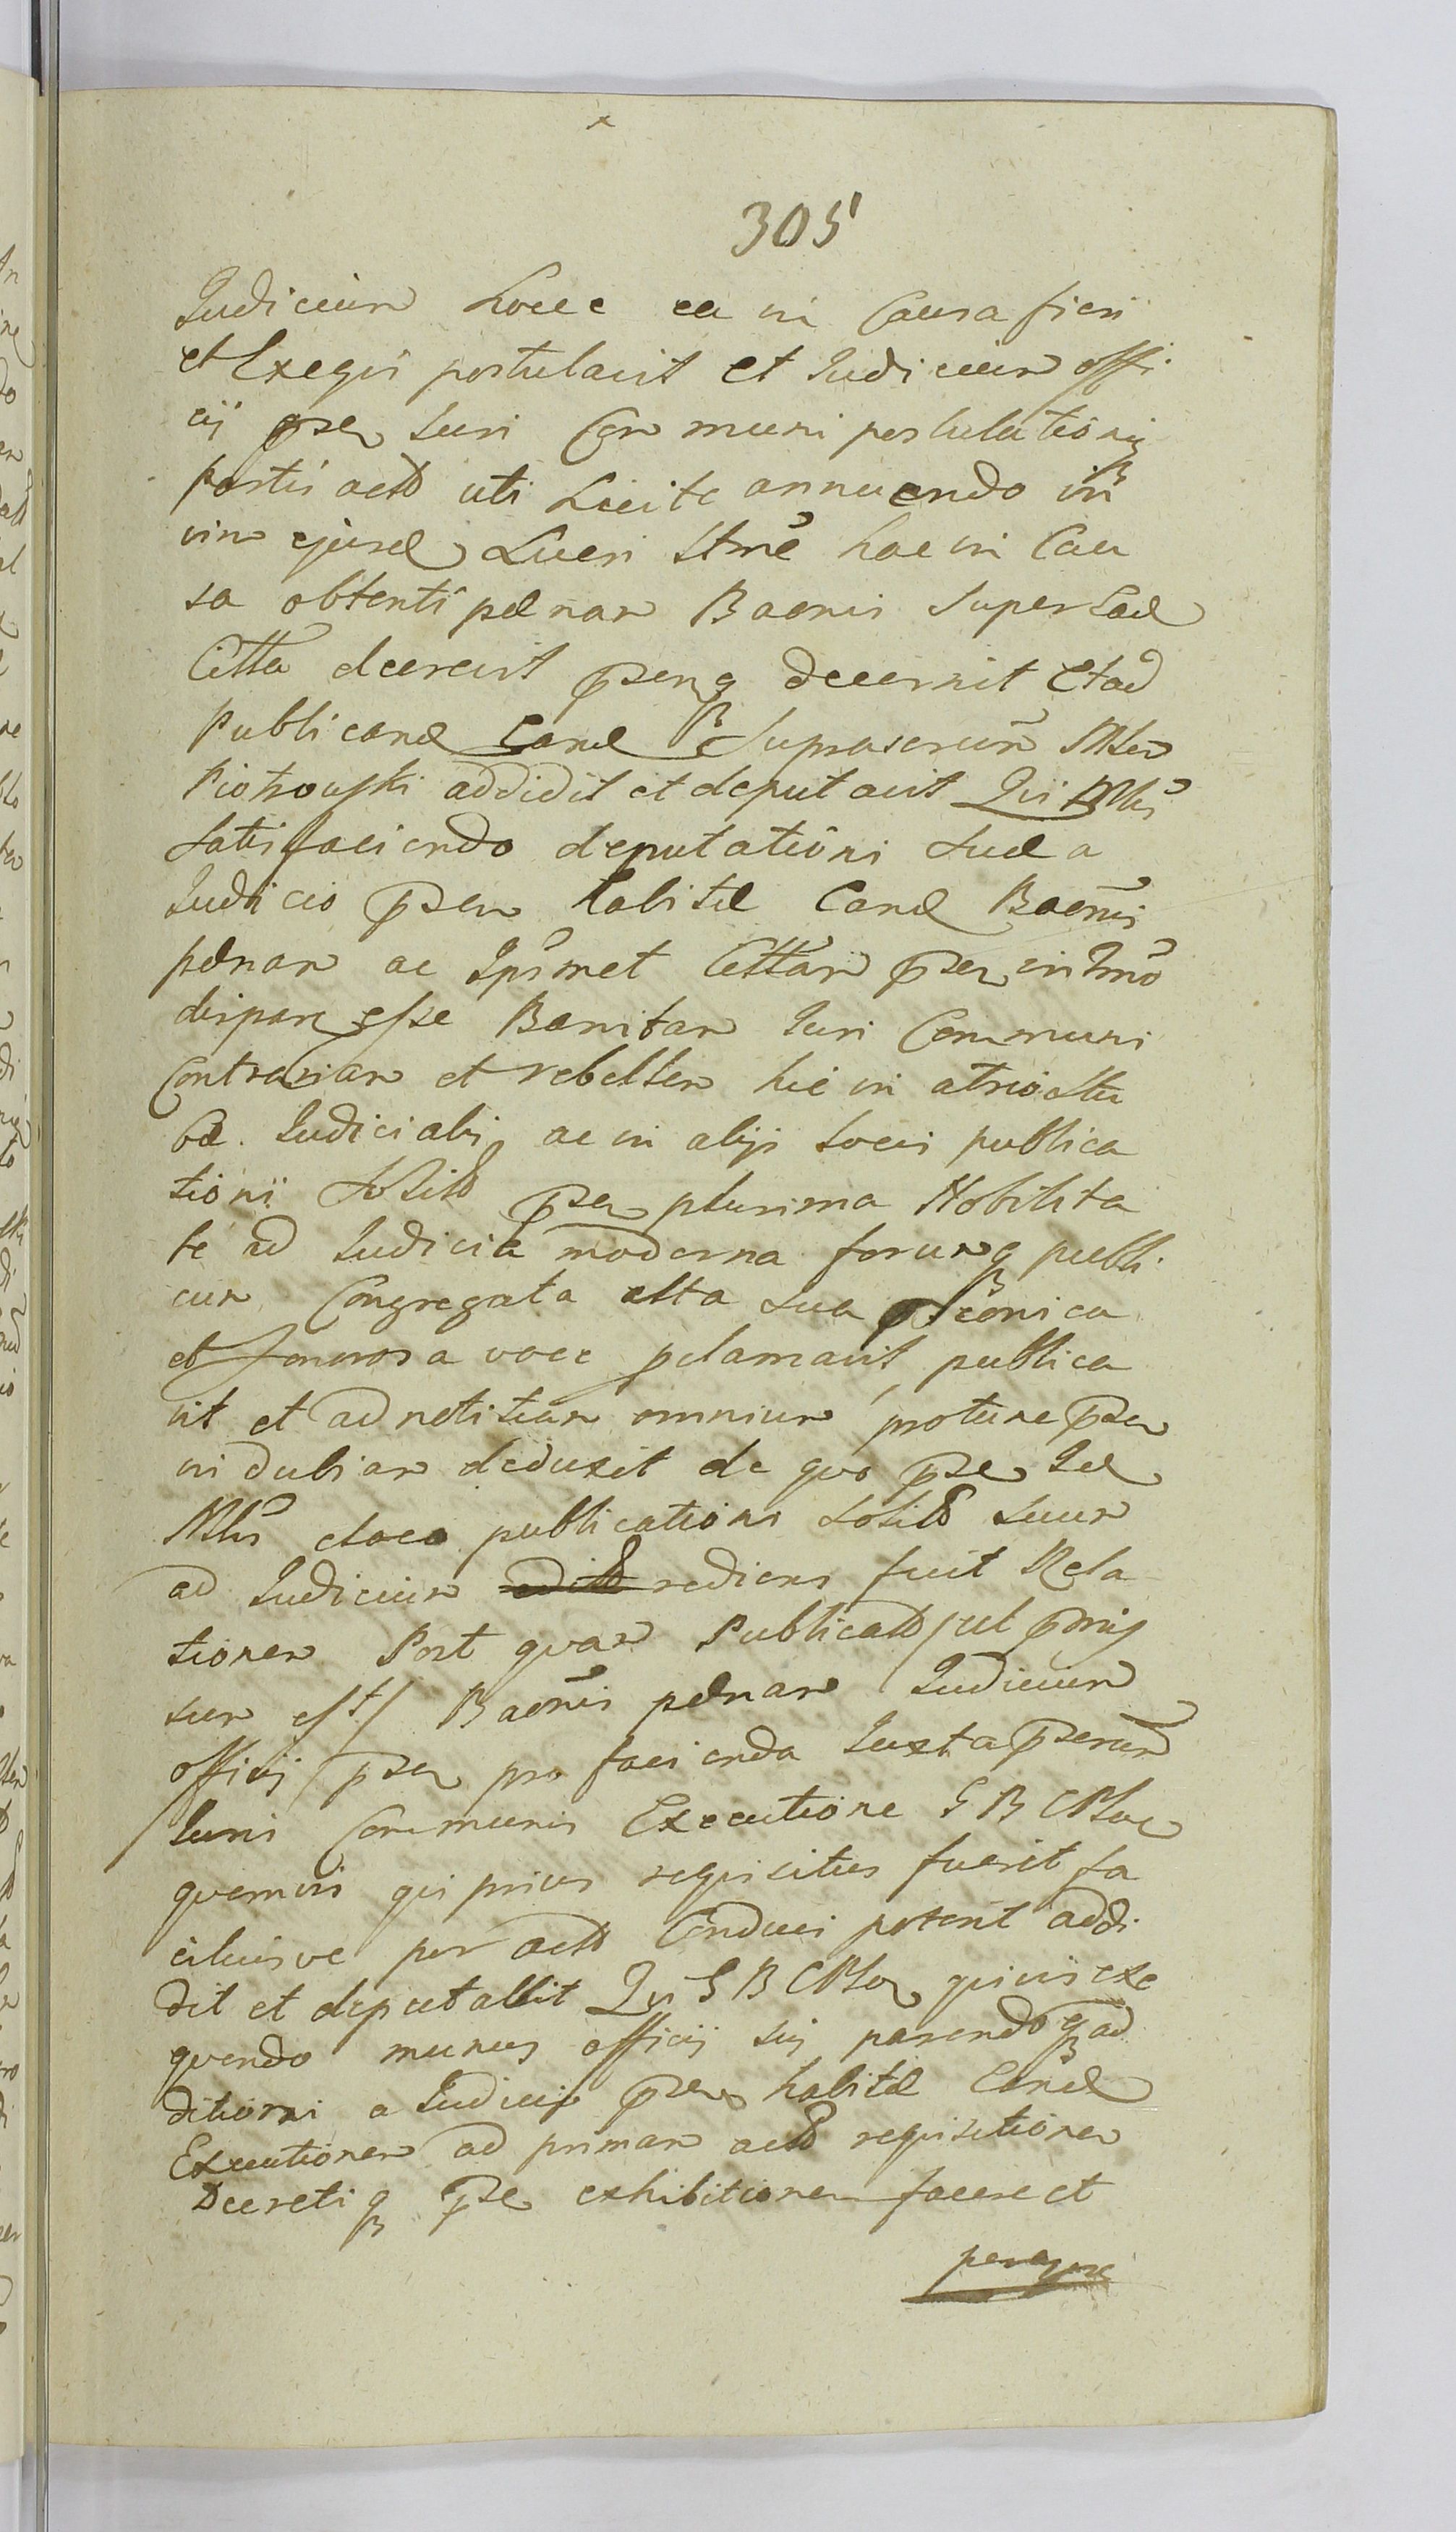 305
Judicium hocce ea in Causa fieri
et Exequi postulavit et Judicium offi
cij psen Juri Communi postulationiq
partis actt uti Licite annuendo in
vim ejusd Lucri Stme hac in Cau
sa obtenti pdnam Baonis super ead
Citta decrevit psenq decernit Et ad
Publicand Eand suprascrm Mlem
Piotrowski addidit et deputavit Qui Mlis
satisfaciendo deputationi sud a
Judicio psen habitd Eand Baonis
pdnam ac Ipsmet Cittam psen in Tmo
disparem esse Banitam Juri Communi
Contrariam et rebellem hic in atrio Stu
bæ Judicialis ac in alijs locis publica
tionii solitt psen plurima Nobilita
te ad Judicia moderna forumq publi
cum Congregata alta sua
et sonorosa voce pclamavit publica
vit et ad notitiam omnium protunc psen
in dubiam deduxit de quo pse Id
Mlis eloco publicationi solitt suum
ad Judicium rediens fuit Rela
tionem Post quam Publicatt /ut pmis
sum est/ Baonis pdnam Judicium
officij psen pro facienda Juxta pserm
Juris Communis Executione G B CPLoc
quemvis qui prius requisitus fuerit fa
ciliusve per actt Conduci poterit addi
dit et deputabit Qui G B CPLoc quivis exe
quendo munus officij sui parendoq ad
ditioni a Judicij psen habitd Eand
Executionem ad primam actt requisitionem
Decretiq pse exhibitionem facere et
peragere